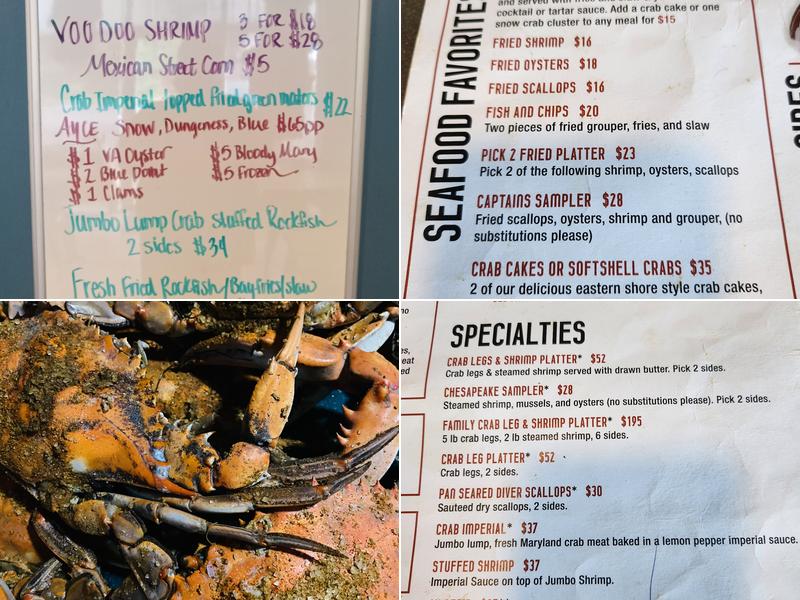 VOO DOO SHRIMP 3 FOR $18
5 FOR $28
Mexican Street Corn $5
Crab Imperial topped fried green maters $22
AYCE Snow, Dungeness, Blue $65pp
$1 VA Oyster $5 Bloody Mary
$2 Blue Point $5 Frozen
$1 Clams
Jumbo Lump Crab stuffed Rockfish
2 sides $34
Fresh Fried Rockfish/Bay fries/slaw
SEAFOOD FAVORITES
and served with fries and
cocktail or tartar sauce. Add a crab cake or one
snow crab cluster to any meal for $15
FRIED SHRIMP $16
FRIED OYSTERS $18
FRIED SCALLOPS $16
FISH AND CHIPS $20
Two pieces of fried grouper, fries, and slaw
PICK 2 FRIED PLATTER $23
Pick 2 of the following shrimp, oysters, scallops
CAPTAINS SAMPLER $28
Fried scallops, oysters, shrimp and grouper, (no
substitutions please)
CRAB CAKES OR SOFTSHELL CRABS $35
2 of our delicious eastern shore style crab cakes,
SPECIALTIES
CRAB LEGS & SHRIMP PLATTER* $52
Crab legs & steamed shrimp served with drawn butter. Pick 2 sides.
CHESAPEAKE SAMPLER* $28
Steamed shrimp, mussels, and oysters (no substitutions please). Pick 2 sides.
FAMILY CRAB LEG & SHRIMP PLATTER* $195
5 lb crab legs, 2 lb steamed shrimp, 6 sides.
CRAB LEG PLATTER* $52
Crab legs, 2 sides.
PAN SEARED DIVER SCALLOPS* $30
Sauteed dry scallops, 2 sides.
CRAB IMPERIAL* $37
Jumbo lump, fresh Maryland crab meat baked in a lemon pepper imperial sauce.
STUFFED SHRIMP $37
Imperial Sauce on top of Jumbo Shrimp.